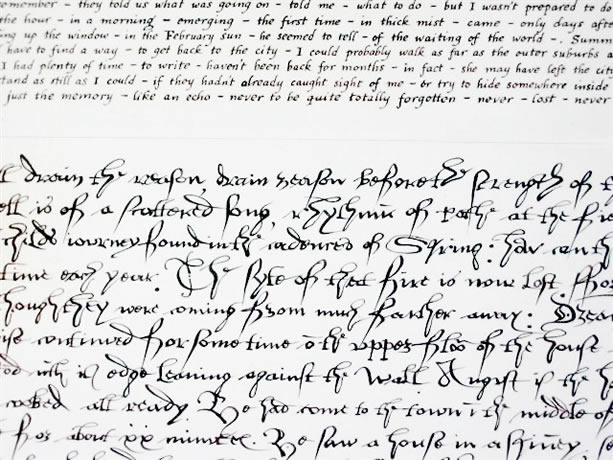 remember - they told us what was going on - told me - what to do - but I wasn't prepared to do
the hour - in a morning - emerging - the first time - in thick mist - came - only days after
up the window - in the February sun - he seemed to tell - of the waiting of the world -. Summ
have to find a way - to get back to the city - I could probably walk as far as the outer suburbs a
I had plenty of time - to write - haven't been back for months - in fact - she may have left the city
stand as still as I could - if they hadn't already caught sight of me - or try to hide somewhere inside
just the memory - like an echo - never to be quite totally forgotten - never - lost - never
drain the reason, drain season before the strength of t
is of a scattered song, rhythmic of at the
journey found in the cadenced of Spring:
time each year. The of that fire is now lost.
though they were coming from much farther away:
continued for some time o the upper of the house
edge leaning against the Wall. August
all ready He had come to the town i the middle of
for about xx He saw a house in a